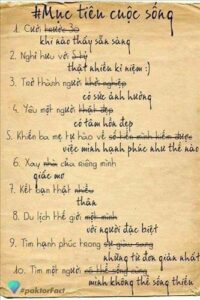 #Mục tiêu cuộc sống
1. Cưới trước 30
khi nào thấy sẵn sàng
2. Nghỉ hưu với
thật nhiều kỉ niệm :)
3. Trở thành người khởi nghiệp
có sức ảnh hưởng
4. Yêu một người thật đẹp
có tâm hồn đẹp
5. Khiến ba mẹ tự hào về số tiền mình kiếm được
việc mình hạnh phúc như thế nào
6. Xây nhà của riêng mình
giấc mơ
7. Kết bạn thật nhiều
thân
8. Du lịch thế giới một mình
với người đặc biệt
9. Tìm hạnh phúc trong sự giàu sang
những từ đơn giản nhất
10. Tìm một người có thể sống cùng
mình không thể sống thiếu
#paktorFact